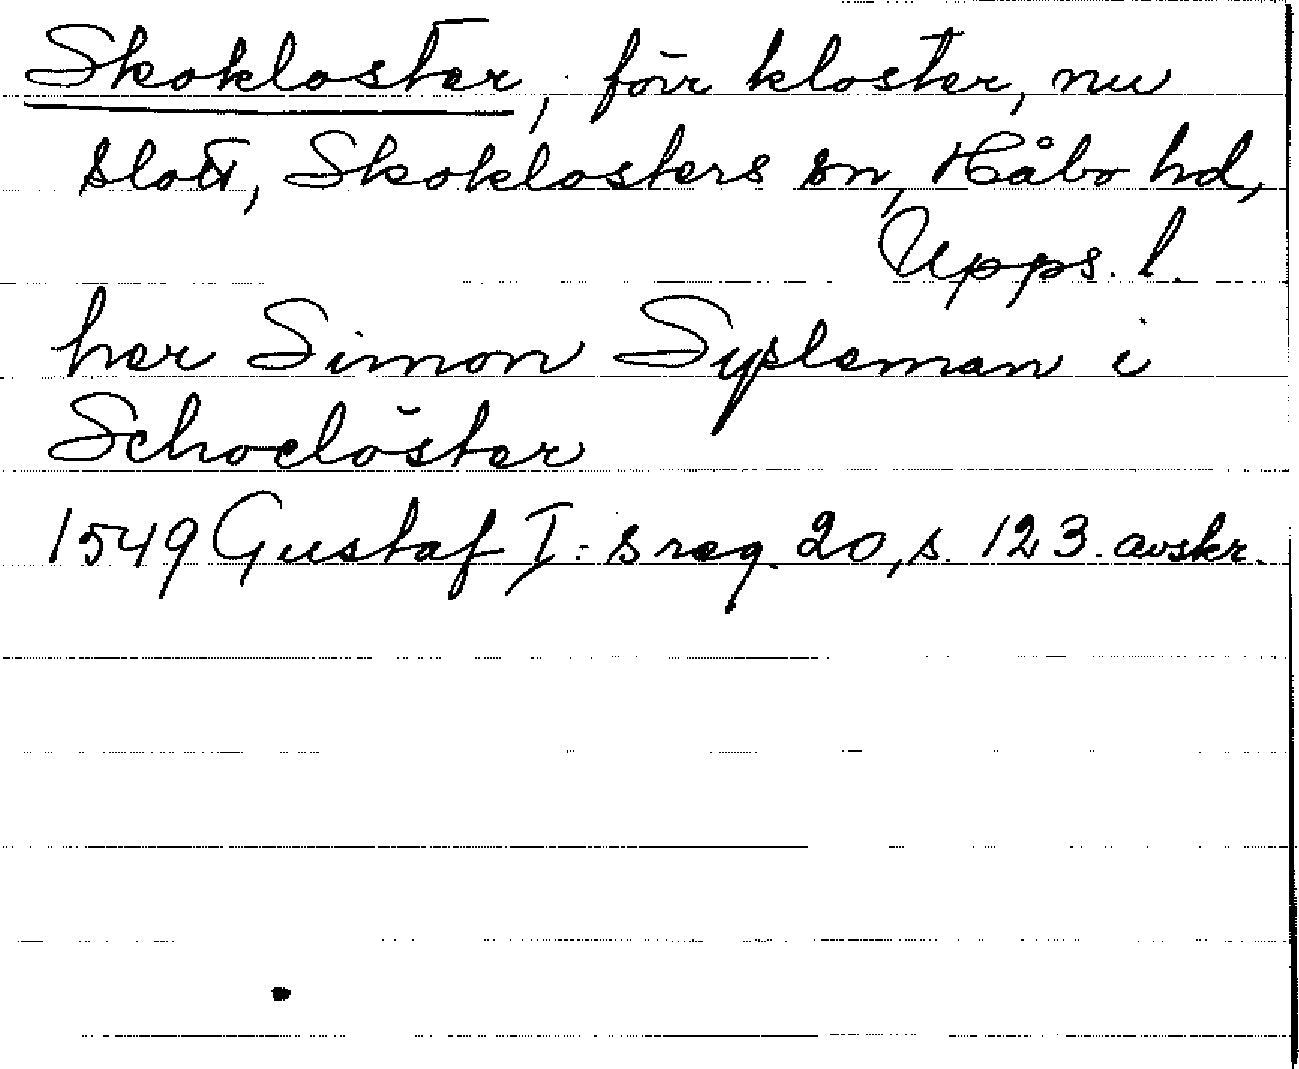 Skokloster, förr kloster, nu
slott, Skoklosters sn, Håbo hd,
Upps. l.
her Simon Sysleman i
Schoclöster
1549 Gustaf I:s reg. 20, s. 123. avskr.